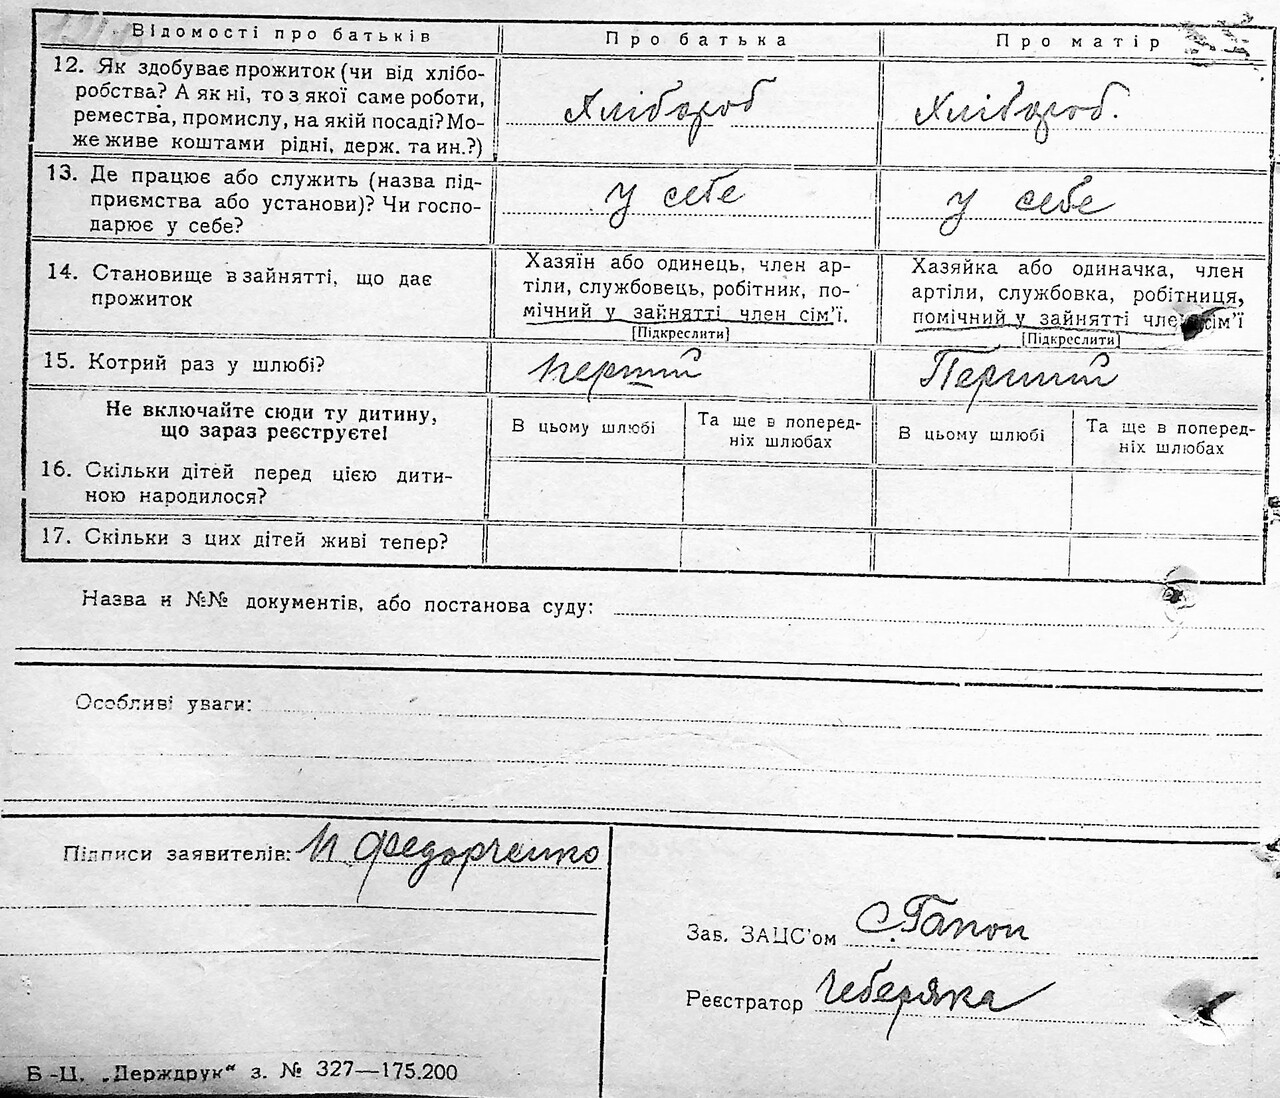 Відомості про батьків
Про батька
Про матір
12. Як здобуває прожиток (чи від хлібо-
робства? А як ні, то з якої саме роботи,
ремества, промислу, на якій посаді? Мо-
же живе коштами рідні, держ. та ин.?)
Хлібороб
Хлібороб.
13. Де працює або служить (назва під-
приємства або установи)? Чи госпо-
дарює у себе?
у себе
у себе
14. Становище в зайнятті, що дає
прожиток
Хазяїн або одинець, член ар-
тіли, службовець, робітник, по-
мічний у зайнятті член сім'ї.
[Підкреслити]
Хазяйка або одиначка, член
артіли, службовка, робітниця,
помічний у зайнятті член сім'ї
[Підкреслити]
15. Котрий раз у шлюбі?
перший
Перший
Не включайте сюди ту дитину,
що зараз реєструєте!
В цьому шлюбі
Та ще в поперед-
ніх шлюбах
В цьому шлюбі
Та ще в поперед-
ніх шлюбах
16. Скільки дітей перед цією дити-
ною народилося?
17. Скільки з цих дітей живі тепер?
Назва и №№ документів, або постанова суду:
Особливі уваги:
Підписи заявителів: И Федорченко
Зав. ЗАЦС'ом С. Гапон
Реєстратор Чеберяка
Б-Ц. „Держдрук“ з. № 327—175.200